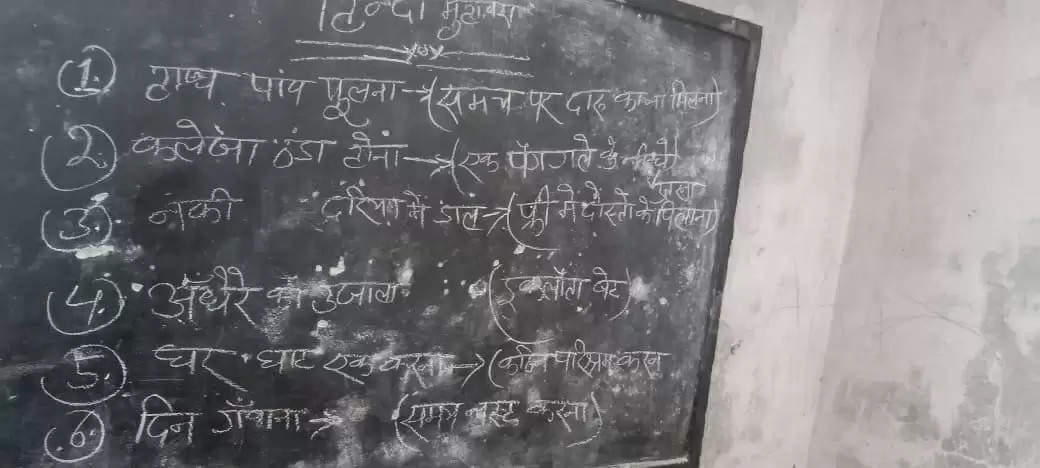 हिन्दी मुहावरा
1. हाथ पांव फूलना → (समय पर दारू का ना मिलना)
2. कलेजा ठंडा होना → (एक पैग गले के नीचे)
3. नेकी दरिया में डाल → (फ्री में दोस्तो को पिलाना)
4. अंधेरे का उजाला (इकलौता बेटा)
5. घर घाट एक करना → (कठिन परिश्रम करना
6. दिन गँवाना → (समय नष्ट करना)